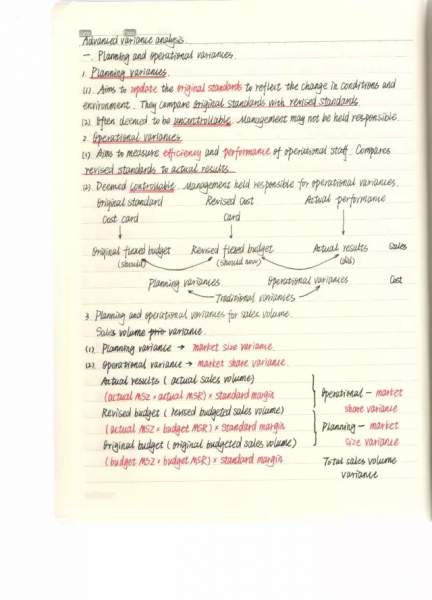 Advanced variance analysis.
一. Planning and operational variances.
1. Planning variances.
(1). Aims to update the original standards to reflect the change in conditions and
environment. They compare original standards with revised standards.
(2). Often deemed to be uncontrollable. Management may not be held responsible.
2. Operational variances.
(1). Aims to measure efficiency and performance of operational staff. Compares
revised standards to actual results.
(2). Deemed controllable. Management held responsible for operational variances.
Original standard Revised Cost Actual performance
Cost card Card
Original flexed budget Revised flexed budget Actual results Sales
(should) (should now) (did)
Planning variances Operational variances Cost
Traditional variances
3. Planning and operational variances for sales volume.
Sales volume price variance.
(1). Planning variance → market size variance.
(2). Operational variance → market share variance.
Actual results (actual sales volume)
(actual MSZ × actual MSR) × standard margin
Operational - market
Revised budget (revised budgeted sales volume)
share variance
(actual MSZ × budget MSR) × standard margin
Planning - market
Original budget (original budgeted sales volume)
size variance
(budget MSZ × budget MSR) × standard margin
Total sales volume
variance